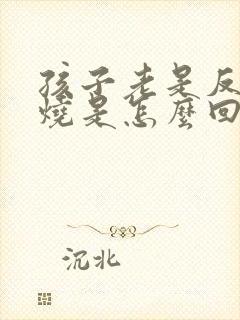 孩子老是反
燒是怎麼回
沉北